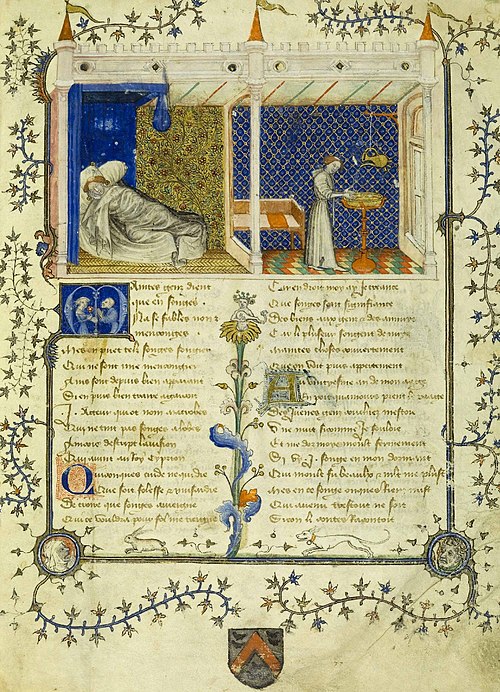 Maintes gens dient
que en songes
Na se fables non et
mensonges
Mes en puet telz songes songier
Qui ne sont mie mensongier
Ains sont depuis bien apparant
Si en puis bien traire a garant
J. Acteur qui ot non macrobes
Qui ne tint pas songes a lobes
Aincois descript la vision
Qui avint au roy cypion
Quiconques cuide ne qui die
Que soit folesse et musardie
De croire que songes aviegne
Qui ce vouldra pour fol me tiengne
Car en droit moy ay je creance
Que songes soit signifiance
Des biens aux gens et des annuys
Car li pluseur songent de nuys
Maintes choses couvertement
Que on voit puis appertement
Au vintiesme an de mon aage
Au point quamours prent le paage
Des jeunes gens couchiez mestoie
Une nuit si comme je souloie
Et me dormoye moult forment
Si vy .j. songe en mon dormant
Qui moult fu biaux et mlt me
Mes en ce songe onques rien
Qui avenu trestout ne soit
Si com li contes